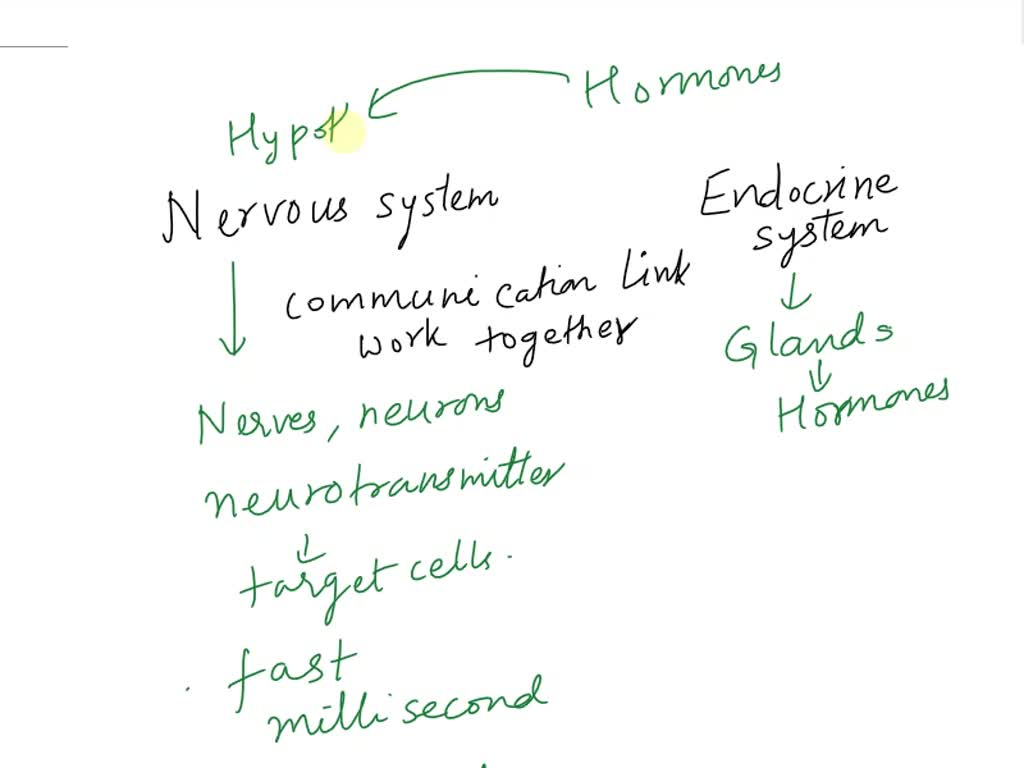 Hormones
Hypot
Nervous system
Endocrine
system
communication link
work together
Glands
Hormones
Nerves, neurons
neurotransmitter
target cells.
fast
millisecond